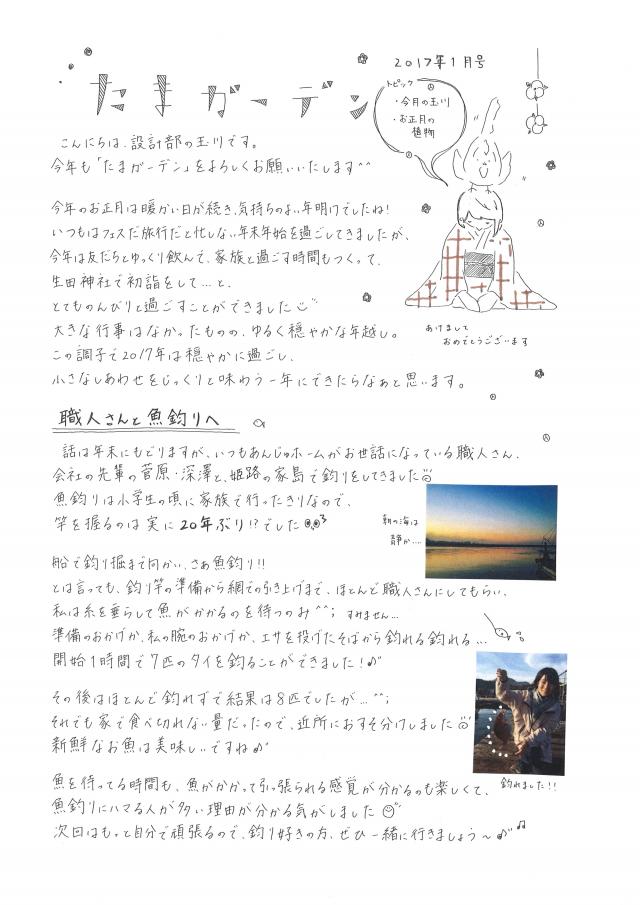 たまガーデン
2017年1月号
トピック
・今月の玉川
・お正月の
植物
こんにちは、設計部の玉川です。
今年も「たまガーデン」をよろしくお願いいたします^^
今年のお正月は暖かい日が続き、気持ちのよい年明けでしたね!
いつもはフェスだ旅行だと忙しない年末年始を過ごしてきましたが、
今年は友だちとゆっくり飲んで、家族と過ごす時間もつくって、
生田神社で初詣をして…と、
とてものんびりと過ごすことができました
大きな行事はなかったものの、ゆるく穏やかな年越し。
この調子で2017年は穏やかに過ごし、
小さなしあわせをじっくりと味わう一年にできたらなぁと思います。
あけまして
おめでとうございます
職人さんと魚釣りへ
話は年末にもどりますが、いつもあんじゅホームがお世話になっている職人さん、
会社の先輩の菅原・深澤と、姫路の家島で釣りをしてきました
魚釣りは小学生の頃に家族で行ったきりなので、
竿を握るのは実に20年ぶり!?でした
朝の海は
静か…
船で釣り掘まで向かい、さぁ魚釣り!!
とは言っても、釣り竿の準備から網での引き上げまで、ほとんど職人さんにしてもらい、
私は糸を垂らして魚がかかるのを待つのみ^^; すみません…
準備のおかげか、私の腕のおかげか、エサを投げたそばから釣れる釣れる…
開始1時間で7匹のタイを釣ることができました!♪
その後はほとんど釣れずで結果は8匹でしたが…^^;
それでも家で食べ切れない量だったので、近所におすそ分けしました
新鮮なお魚は美味しいですね♪
釣れました!!
魚を待ってる時間も、魚がかかって引っ張られる感覚が分かるのも楽しくて、
魚釣りにハマる人が多い理由が分かる気がしました
次回はもっと自分で頑張るので、釣り好きの方、ぜひ一緒に行きましょう〜♪